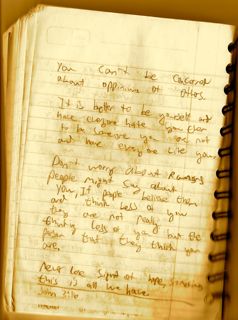 You can't be concerned
about oppinions of others.
It is better to be yourself and
have everyone hate you than
to be someone your not
and have everyone like you.
Don't worry about Rumors
people might say about
you, If people believe them
and think less of you
they are not really
thinking less of you but the
person that they think you
are.
Never lose sight of hope, sometimes
this is all we have